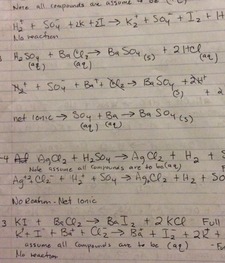 Note all compounds are assume to be
H₂⁺ + SO₄⁻ + 2K + 2I → K₂⁺ + SO₄ + I₂ + H
No reaction
H₂SO₄ + BaCl₂ → BaSO₄(s) + 2HCl
(aq) (aq) (aq)
H₂⁺ + SO₄⁻ + Ba⁺ + Cl₂ → BaSO₄ + 2H⁺
(s) + 2
not ionic → SO₄ + Ba → BaSO₄(s)
(aq) (aq)
4 AgCl₂ + H₂SO₄ → AgCl₂ + H₂ + S
Note assume all compounds are to be (aq)
Ag⁺² Cl₂⁻ + H₂⁺ + SO₄ → Ag₂Cl₂ + H₂ + SO
No Reaction - Net Ionic
3 KI + BaCl₂ → BaI₂ + 2KCl - Full
K⁺ + I⁻ + Ba⁺ + Cl₂⁻ → Ba + I₂ + 2K +
assume all compounds are to be (aq)
No reaction